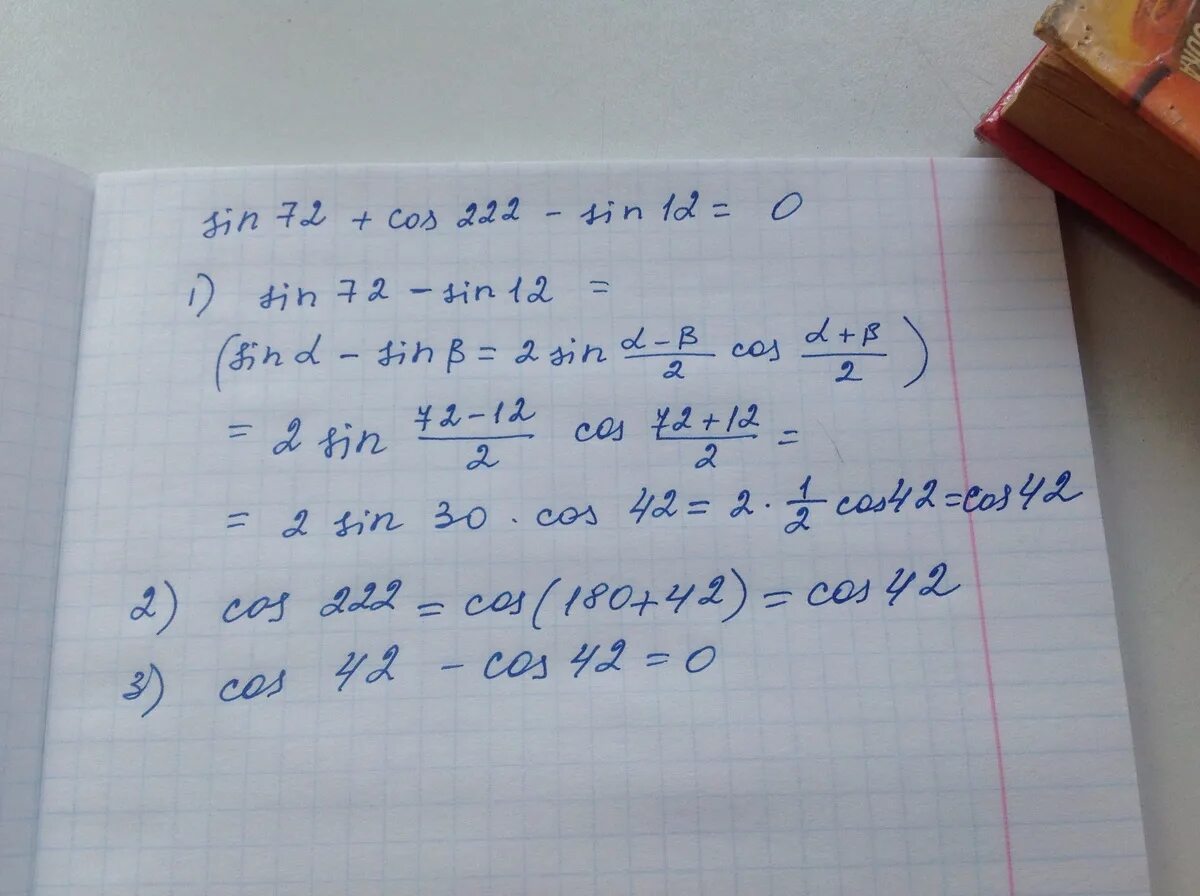 sin 72 + cos 222 - sin 12 = 0
1) sin 72 - sin 12 =
(sin α - sin β = 2 sin (α-β)/2 cos (α+β)/2)
= 2 sin (72-12)/2 cos (72+12)/2 =
= 2 sin 30 · cos 42 = 2 · 1/2 cos 42 = cos 42
2) cos 222 = cos(180+42) = cos 42
3) cos 42 - cos 42 = 0